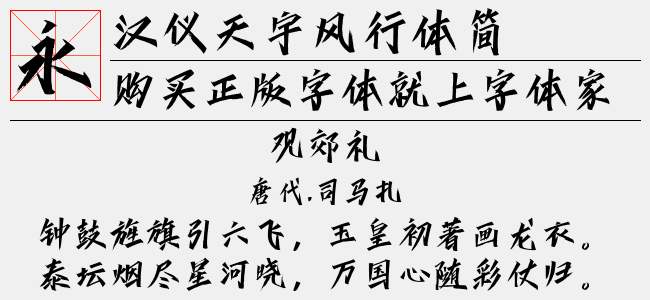 永
汉仪天宇风行体简
购买正版字体就上字体家
观郊礼
唐代.司马扎
钟鼓旌旗引六飞，玉皇初著画龙衣。
泰坛烟尽星河晓，万国心随彩仗归。